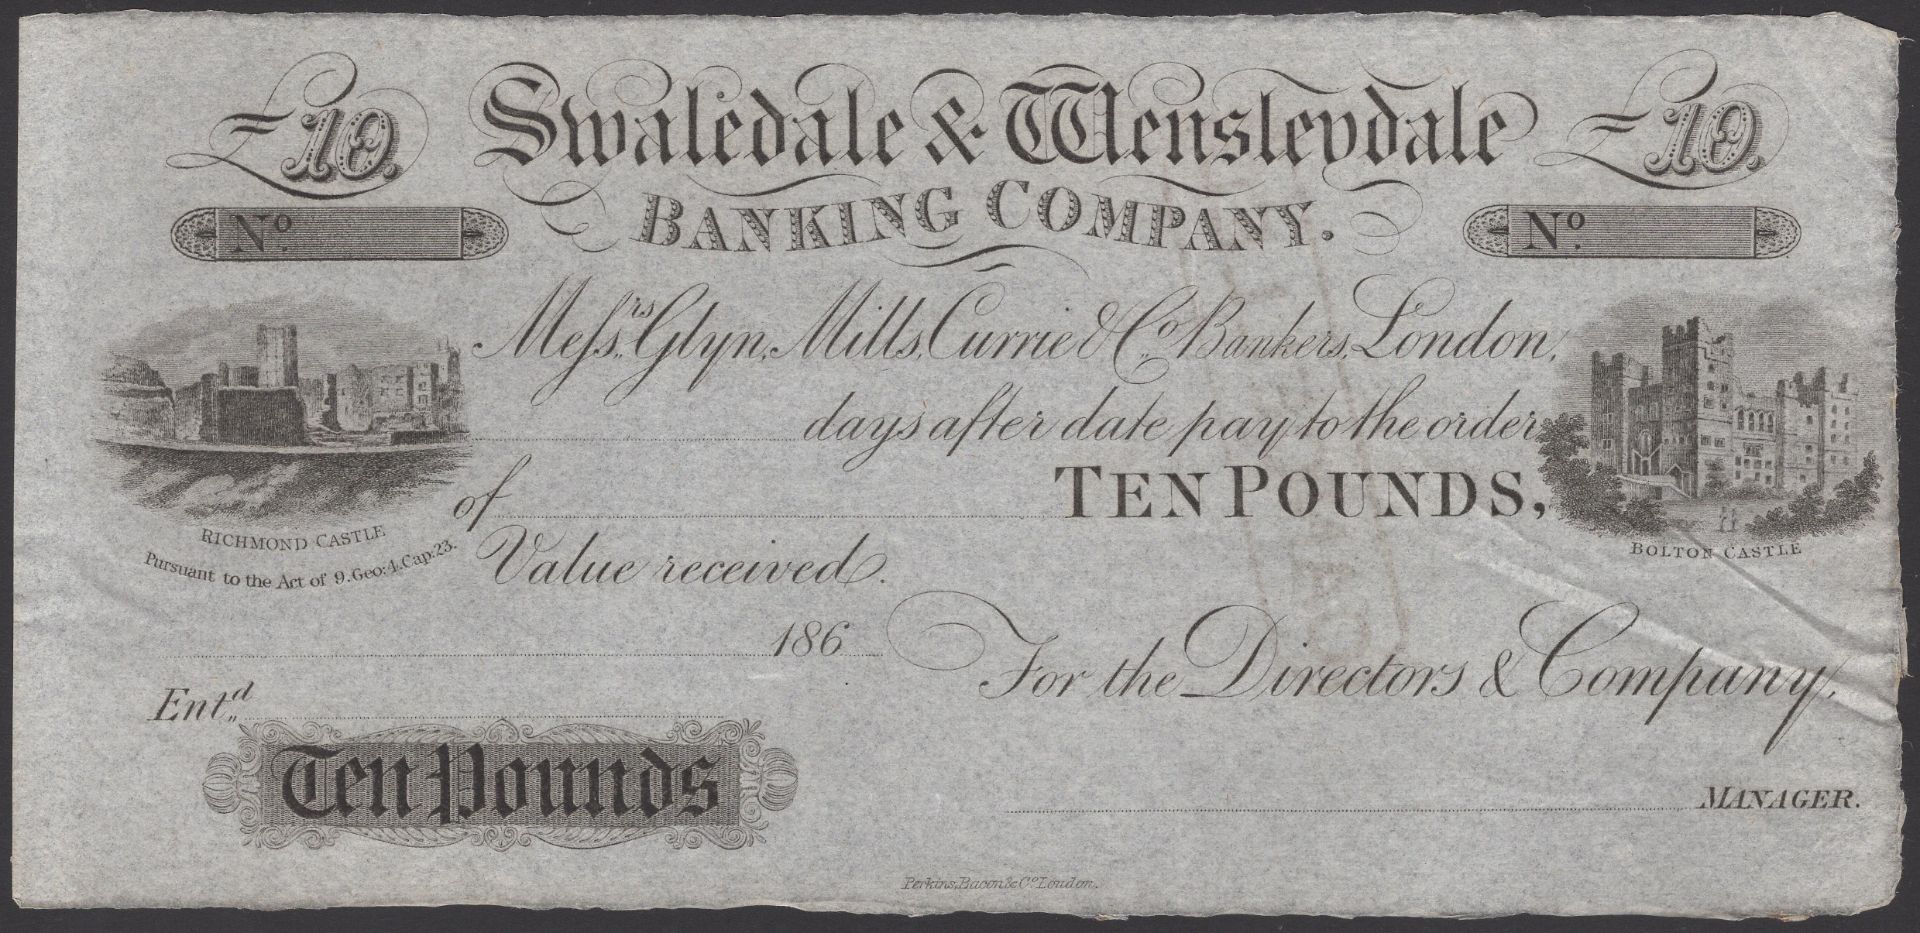 £10. Swaledale & Wensleydale £10.
BANKING COMPANY.
No. No.
Messrs. Glyn, Mills, Currie & Co. Bankers, London,
days after date pay to the order
of TEN POUNDS,
Value received.
RICHMOND CASTLE
Pursuant to the Act of 9.Geo:4.Cap:23.
BOLTON CASTLE
186
For the Directors & Company,
Entd.
Ten Pounds
MANAGER.
Perkins, Bacon & Co. London.